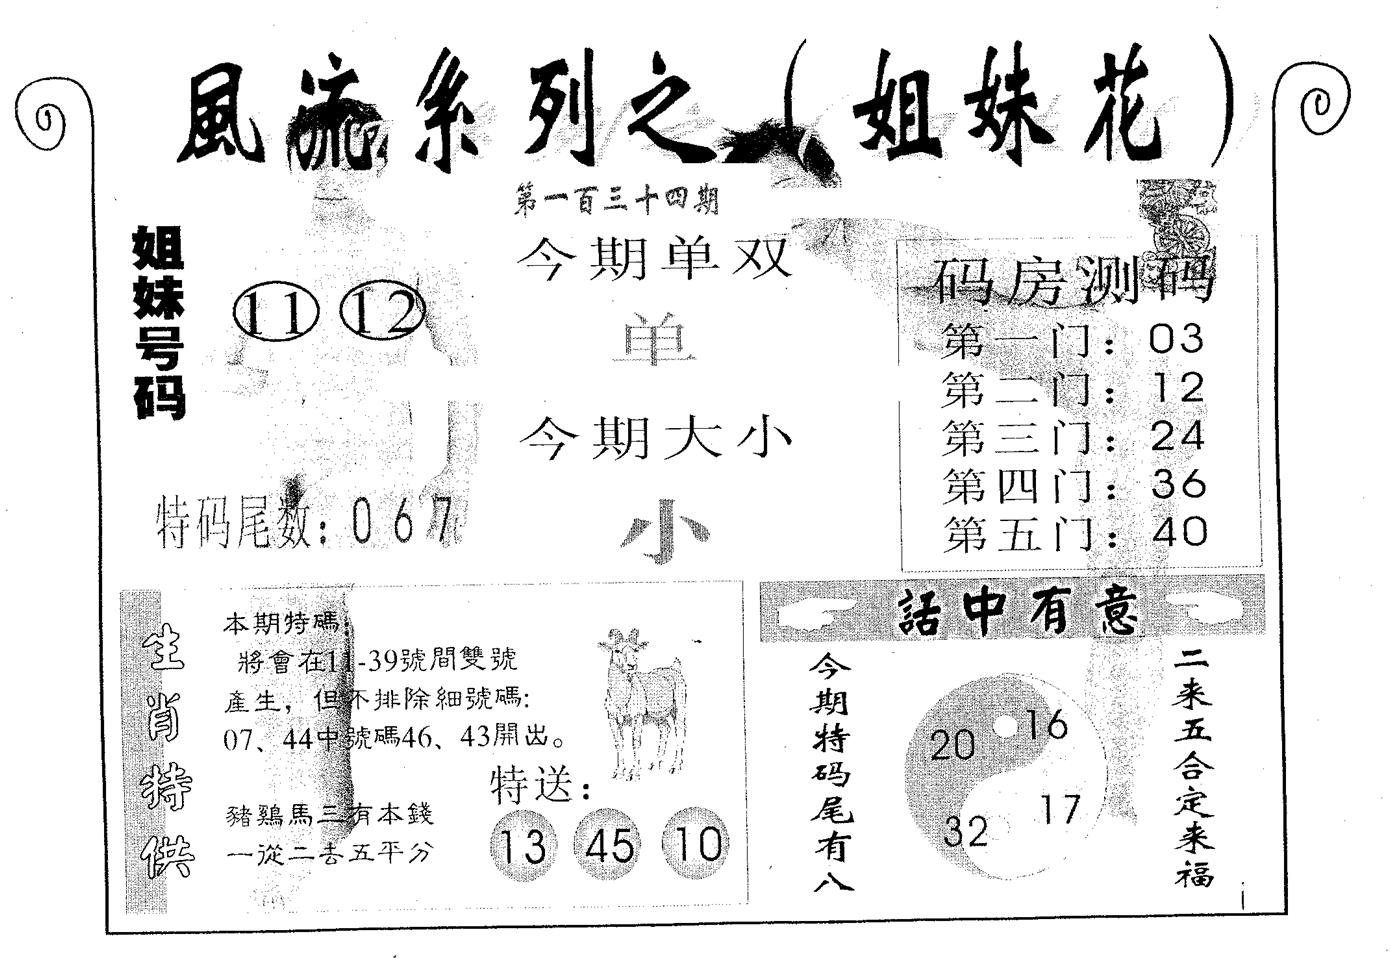 風流系列之（姐妹花）
第一百三十四期
姐妹号码
11 12
特码尾数：0 6 7
今期单双
单
今期大小
小
码房测码
第一门：03
第二门：12
第三门：24
第四门：36
第五门：40
生肖特供
本期特碼：
將會在11-39號間雙號
產生，但不排除細號碼：
07、44中號碼46、43開出。
豬鷄馬三有本錢
一從二去五平分
特送：
13 45 10
話中有意
今期特码尾有八
20 16
32 17
二来五合定来福